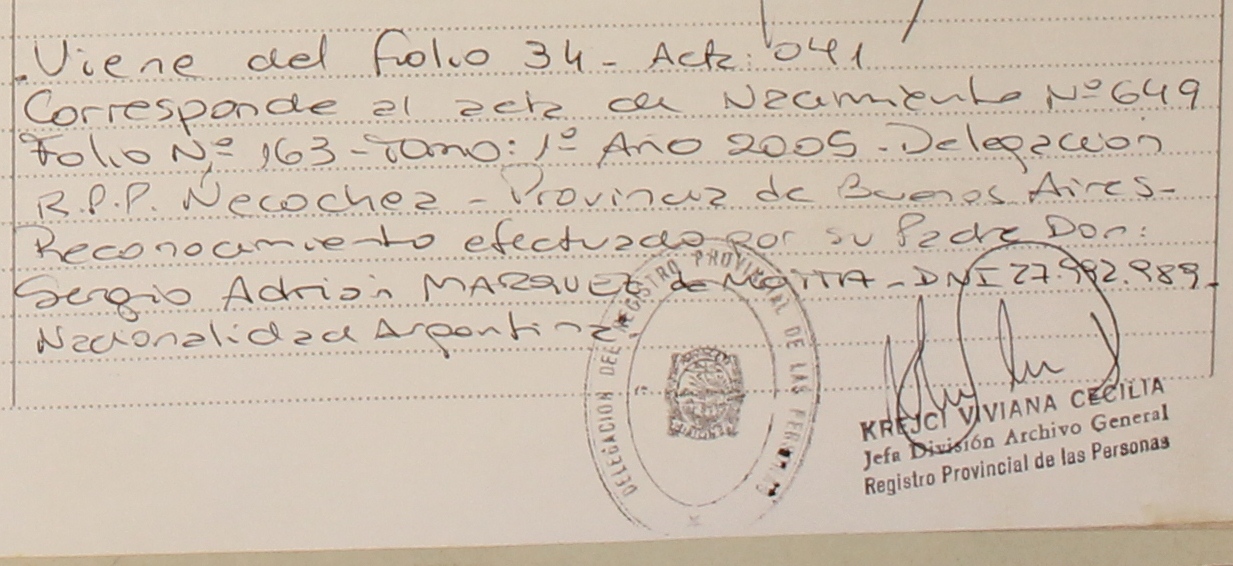 Viene del folio 34 - Acta: 041
Corresponde al acta de Nacimiento Nº 649
Folio Nº 163 - Tomo: 1º Año 2005 - Delegación
R.P.P. Necochea - Provincia de Buenos Aires -
Reconocimiento efectuado por su Padre Don:
Sergio Adrián MARQUEZ de MOTTA - DNI 27.992.989 -
Nacionalidad Argentina
DELEGACION DEL REGISTRO PROVINCIAL DE LAS PERSONAS
KREJCI VIVIANA CECILIA
Jefa División Archivo General
Registro Provincial de las Personas